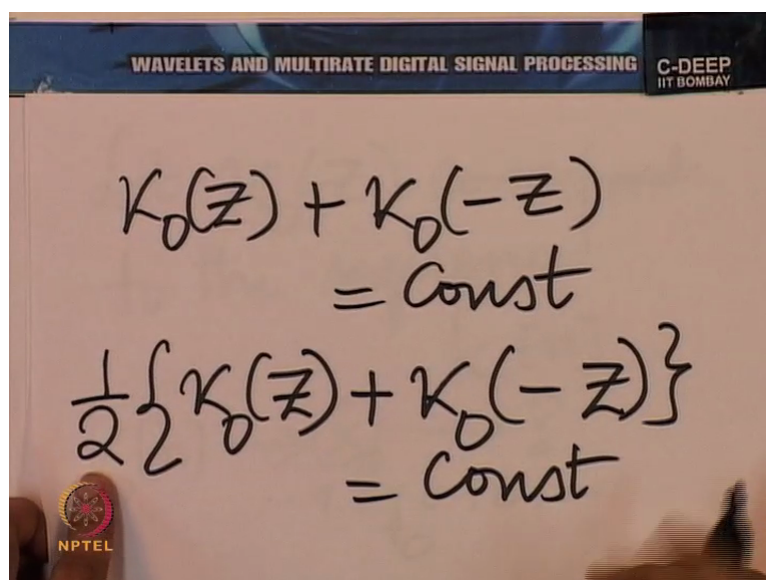 WAVELETS AND MULTIRATE DIGITAL SIGNAL PROCESSING
C-DEEP
IIT BOMBAY
K₀(Z) + K₀(-Z)
= Const
1/2 {K₀(Z) + K₀(-Z)}
= Const
NPTEL